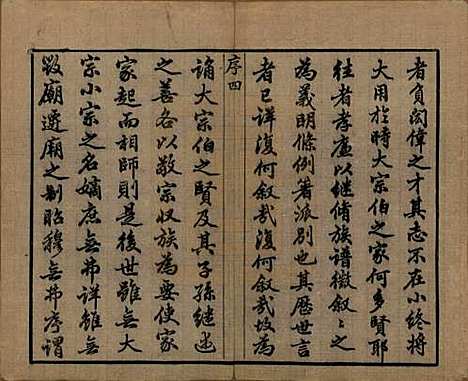 者負閎偉之才其志不在小終將
大用於時大宗伯之家何多賢耶
往者孝廉以繼脩族譜徵叙叙之
為義明條例著派別也其歷世言
者已詳復何叙哉復何叙哉故為
序四
誦大宗伯之賢及其子孫繼述
之善各以敬宗收族為要使家
家起而相師則是後世雖無大
宗小宗之名嫡庶無弗詳雖無
毀廟遷廟之制昭穆無弗序謂